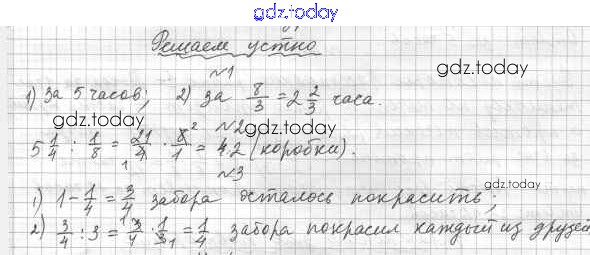 gdz.today
Решаем устно
№1
gdz.today
1) за 5 часов; 2) за 8/3 = 2 2/3 часа.
gdz.today
№2
gdz.today
5 1/4 : 1/8 = 21/4 · 8/1 = 42 (коробки).
№3
gdz.today
1) 1 - 1/4 = 3/4 забора осталось покрасить;
2) 3/4 : 3 = 3/4 · 1/3 = 1/4 забора покрасил каждый из друзей